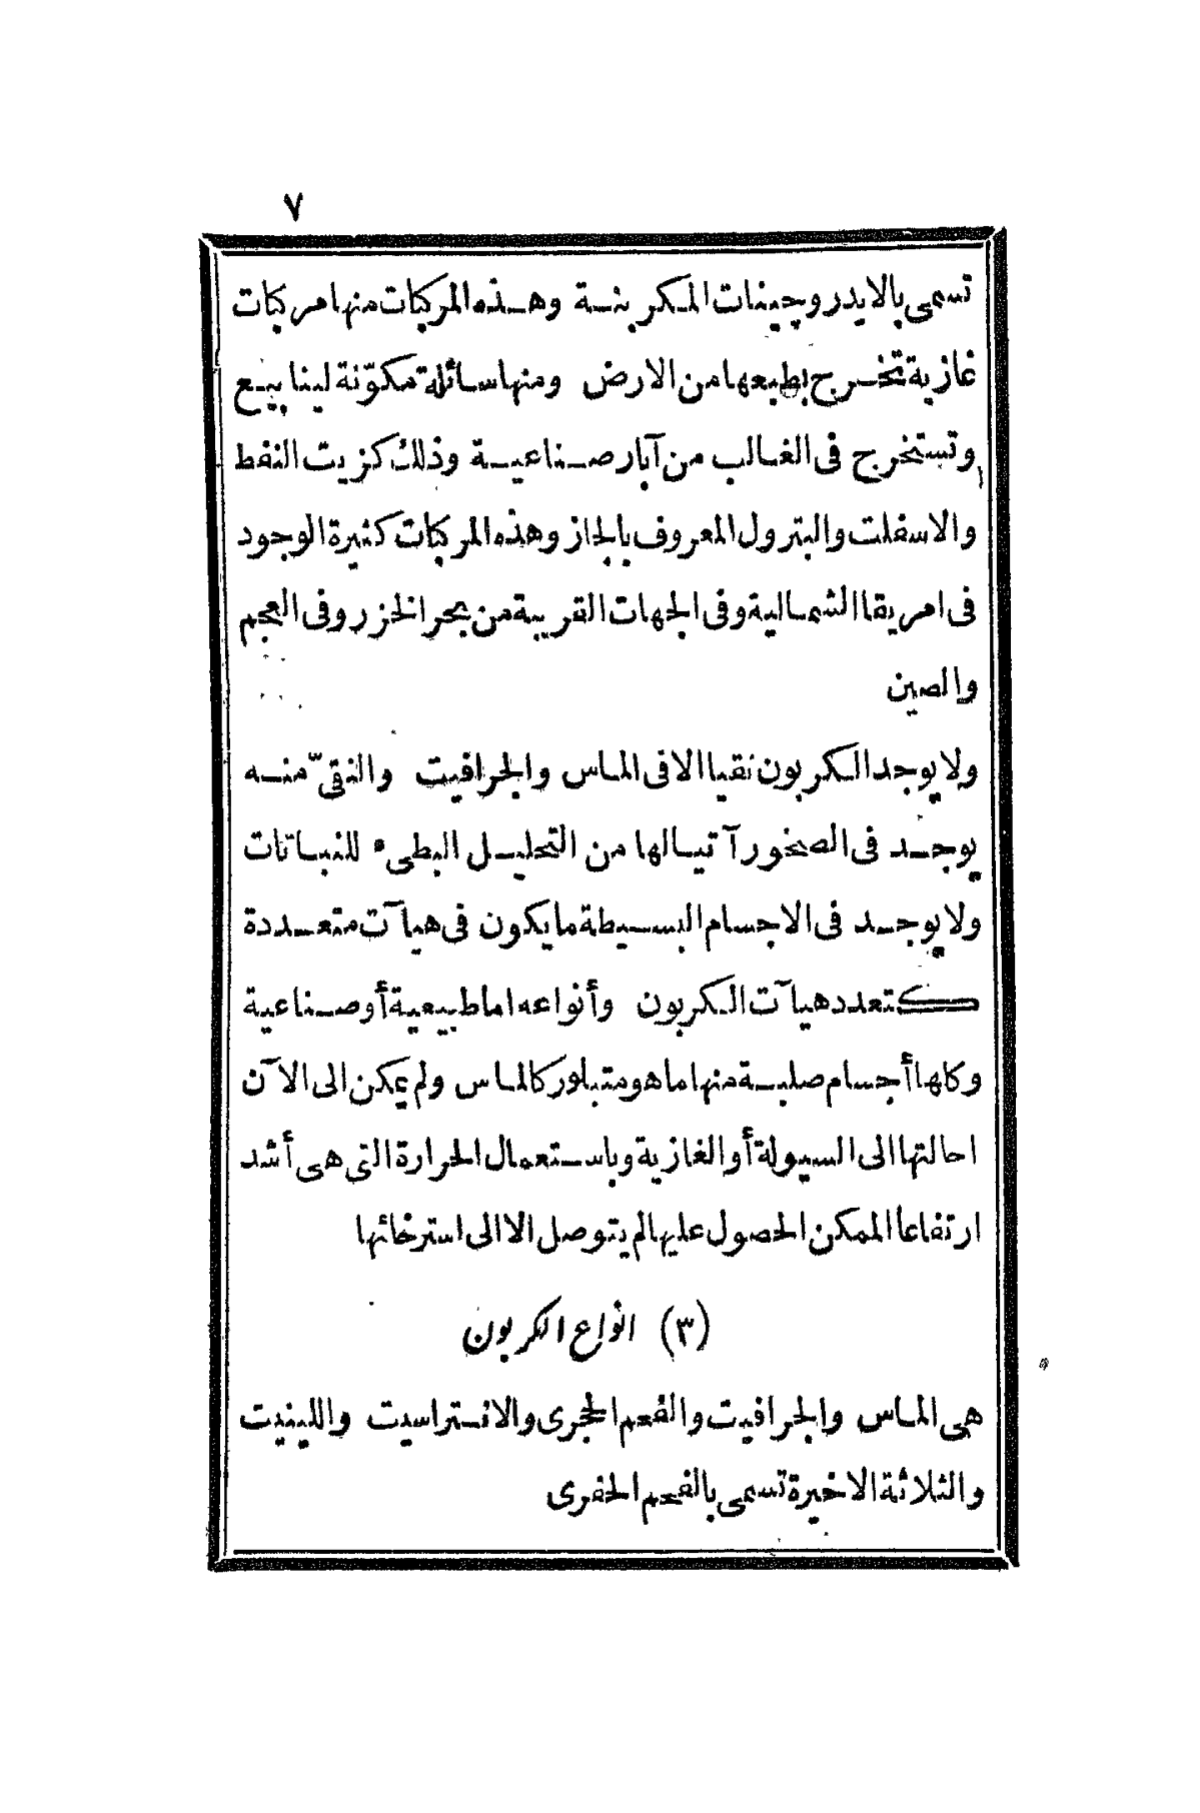 ٧
تسمى بالايدروچينات المكربنة وهذه المركبات منها مركبات
غازية تخرج بطبعها من الارض ومنها سائلة مكوّنة لينابيع
وتستخرج فى الغالب من آبار صناعية وذلك كزيت النفط
والاسفلت والبترول المعروف بالجاز وهذه المركبات كثيرة الوجود
فى امريقا الشمالية وفى الجهات القريبة من بحر الخزر وفى العجم
والصين
ولا يوجد الكربون نقيا الا فى الماس والجرافيت والنقىّ منه
يوجد فى الصخور آتيا لها من التحليل البطىء للنباتات
ولا يوجد فى الاجسام البسيطة ما يكون فى هيآت متعددة
كتعدد هيآت الكربون وأنواعه اما طبيعية أو صناعية
وكلها أجسام صلبة منها ما هو متبلور كالماس ولم يمكن الى الآن
احالتها الى السيولة أو الغازية وباستعمال الحرارة التى هى أشد
ارتفاعا الممكن الحصول عليها لم يتوصل الا الى استرخائها
(٣) انواع الكربون
هى الماس والجرافيت والفحم الحجرى والانتراسيت واللينيت
والثلاثة الاخيرة تسمى بالفحم الحفرى